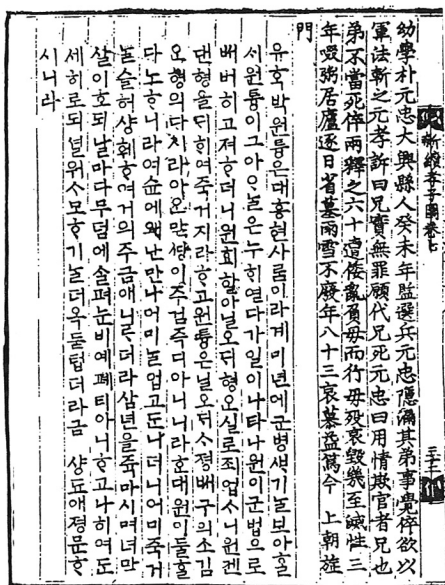 新續孝子圖卷七
幼學朴元忠大興縣人癸未年監選兵元忠隱漏其弟事覺倅欲以
軍法斬之元孝訴曰兄實無罪願代兄死元忠曰用情欺官者兄也
弟不當死倅兩釋之六十遭倭亂負母而行母歿哀毁幾至滅性三
年啜粥居廬逐日省墓雨雪不廢年八十三哀慕益篤今 上朝旌
門
유ᄒᆞᆨ박원튱은대흥현사ᄅᆞᆷ이라계미년에군병ᄲᅢ기ᄂᆞᆯ보아ᄒᆞᆯ
세원튱이그아ᄋᆞᄂᆞᆯ은누ᄒᆡ엿다가일이나타나원이군법으로
버히고져ᄒᆞ더니원회할아닐오ᄃᆡ형오실로죄업스니원컨
대형을ᄃᆡᄒᆞ여죽거지라ᄒᆞ고원튱은닐오ᄃᆡᄉᆞ졍ᄡᅥ구의소김
오형의다시라아ᄋᆞ맛ᄯᅡᆼ이주검즉디아니니라ᄒᆞ대원이둘흘
다노ᄒᆞ니라여슌에왜난만나어미ᄂᆞᆯ업고도나더니어미죽거
ᄂᆞᆯ슬허샹훼ᄒᆞ여거의주금애니ᄅᆞ더라삼년을쥭마시며녀막
살이ᄒᆞ되날마다무덤에ᄉᆞᆯ펴눈비예폐티아니ᄒᆞ고나히여ᄃᆞᆫ
세히로되널위ᄉᆞ모ᄒᆞ기ᄂᆞᆯ더옥둗텁더라금 샹됴애졍문ᄒᆞ
시니라